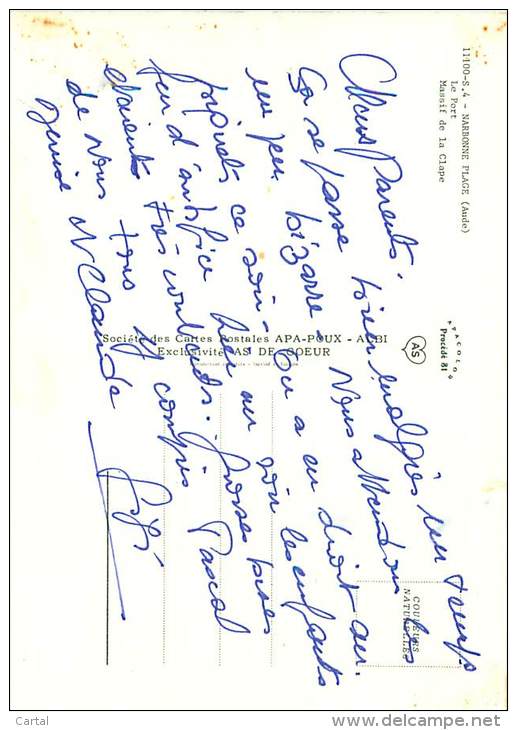 11100-S.4 - NARBONNE PLAGE (Aude)
Le Port
Massif de la Clape
APACOLOR
Procédé 81
AS
COULEURS
NATURELLES
Société des Cartes Postales APA-POUX - ALBI
Exclusivité AS DE COEUR
Chers Parents,
Ça se passe bien malgrès un temps
un peu bizarre. Nous attendons les
piquets ce soir. On a eu droit au
feu d'artifice hier au soir les enfants
étaients très contents. Grosses bises
de nous tous y compris Pascal
Denise J Claude
Cartal
www.delcampe.net